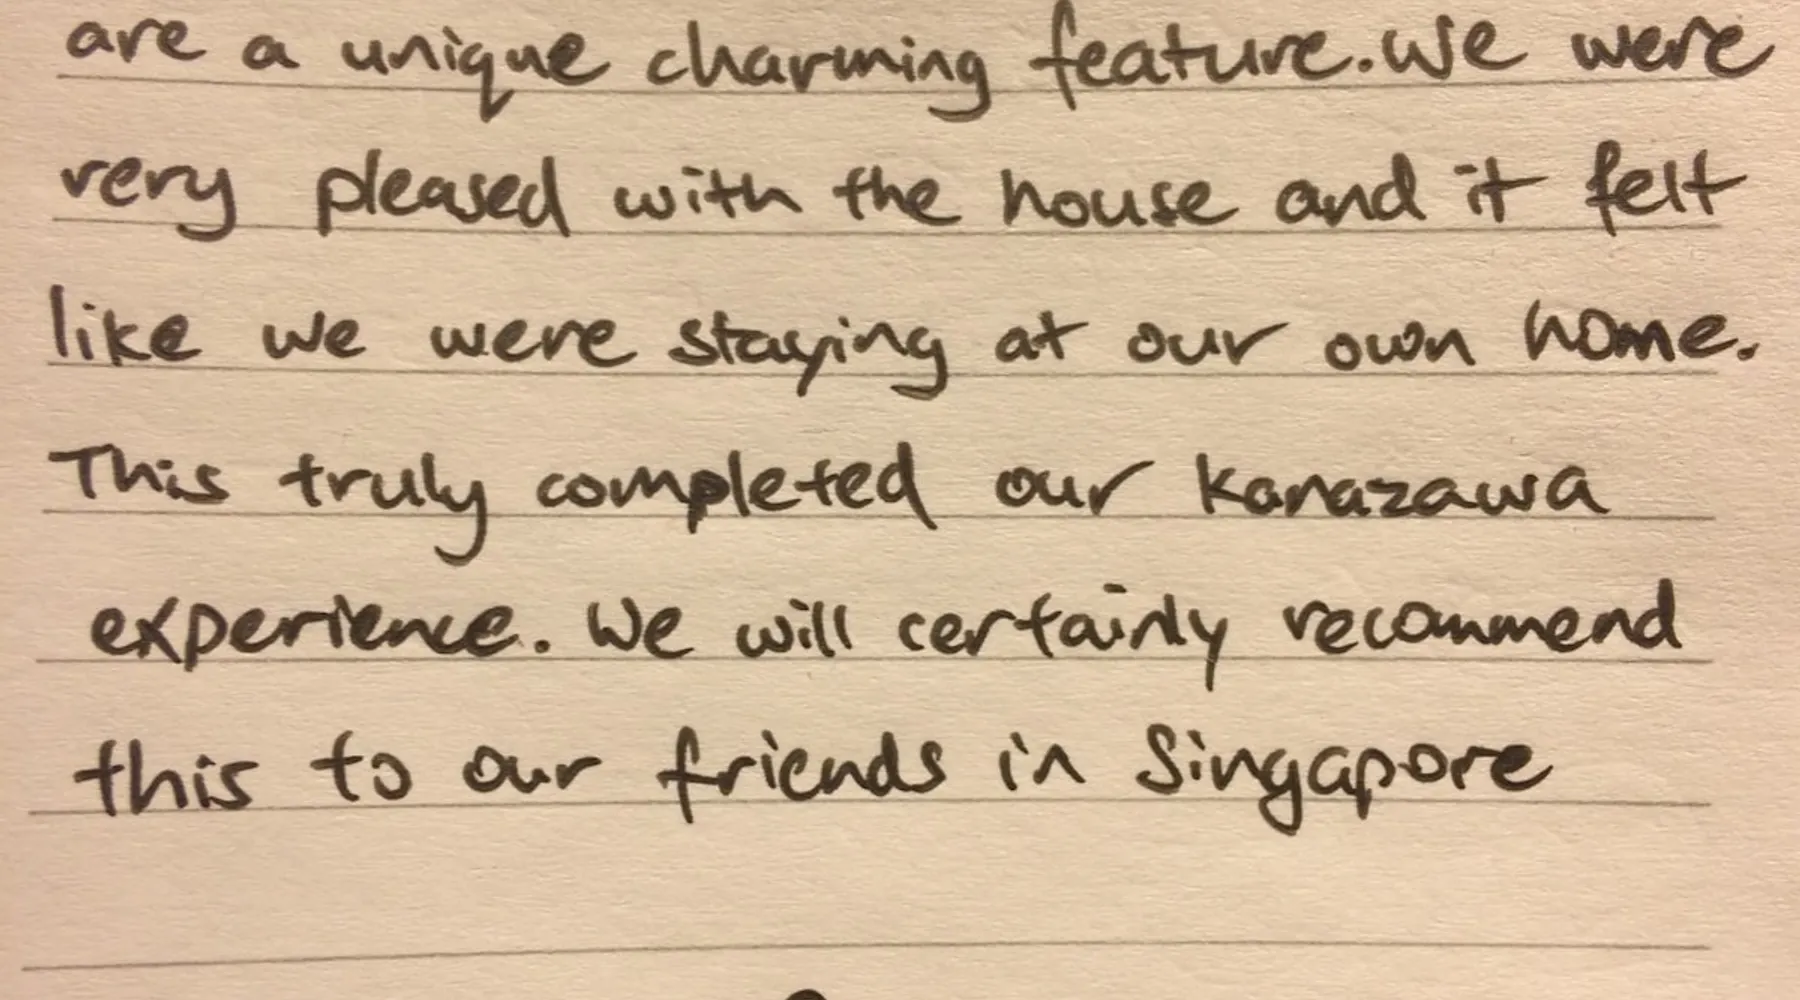 are a unique charming feature. We were
very pleased with the house and it felt
like we were staying at our own home.
This truly completed our Kanazawa
experience. We will certainly recommend
this to our friends in Singapore